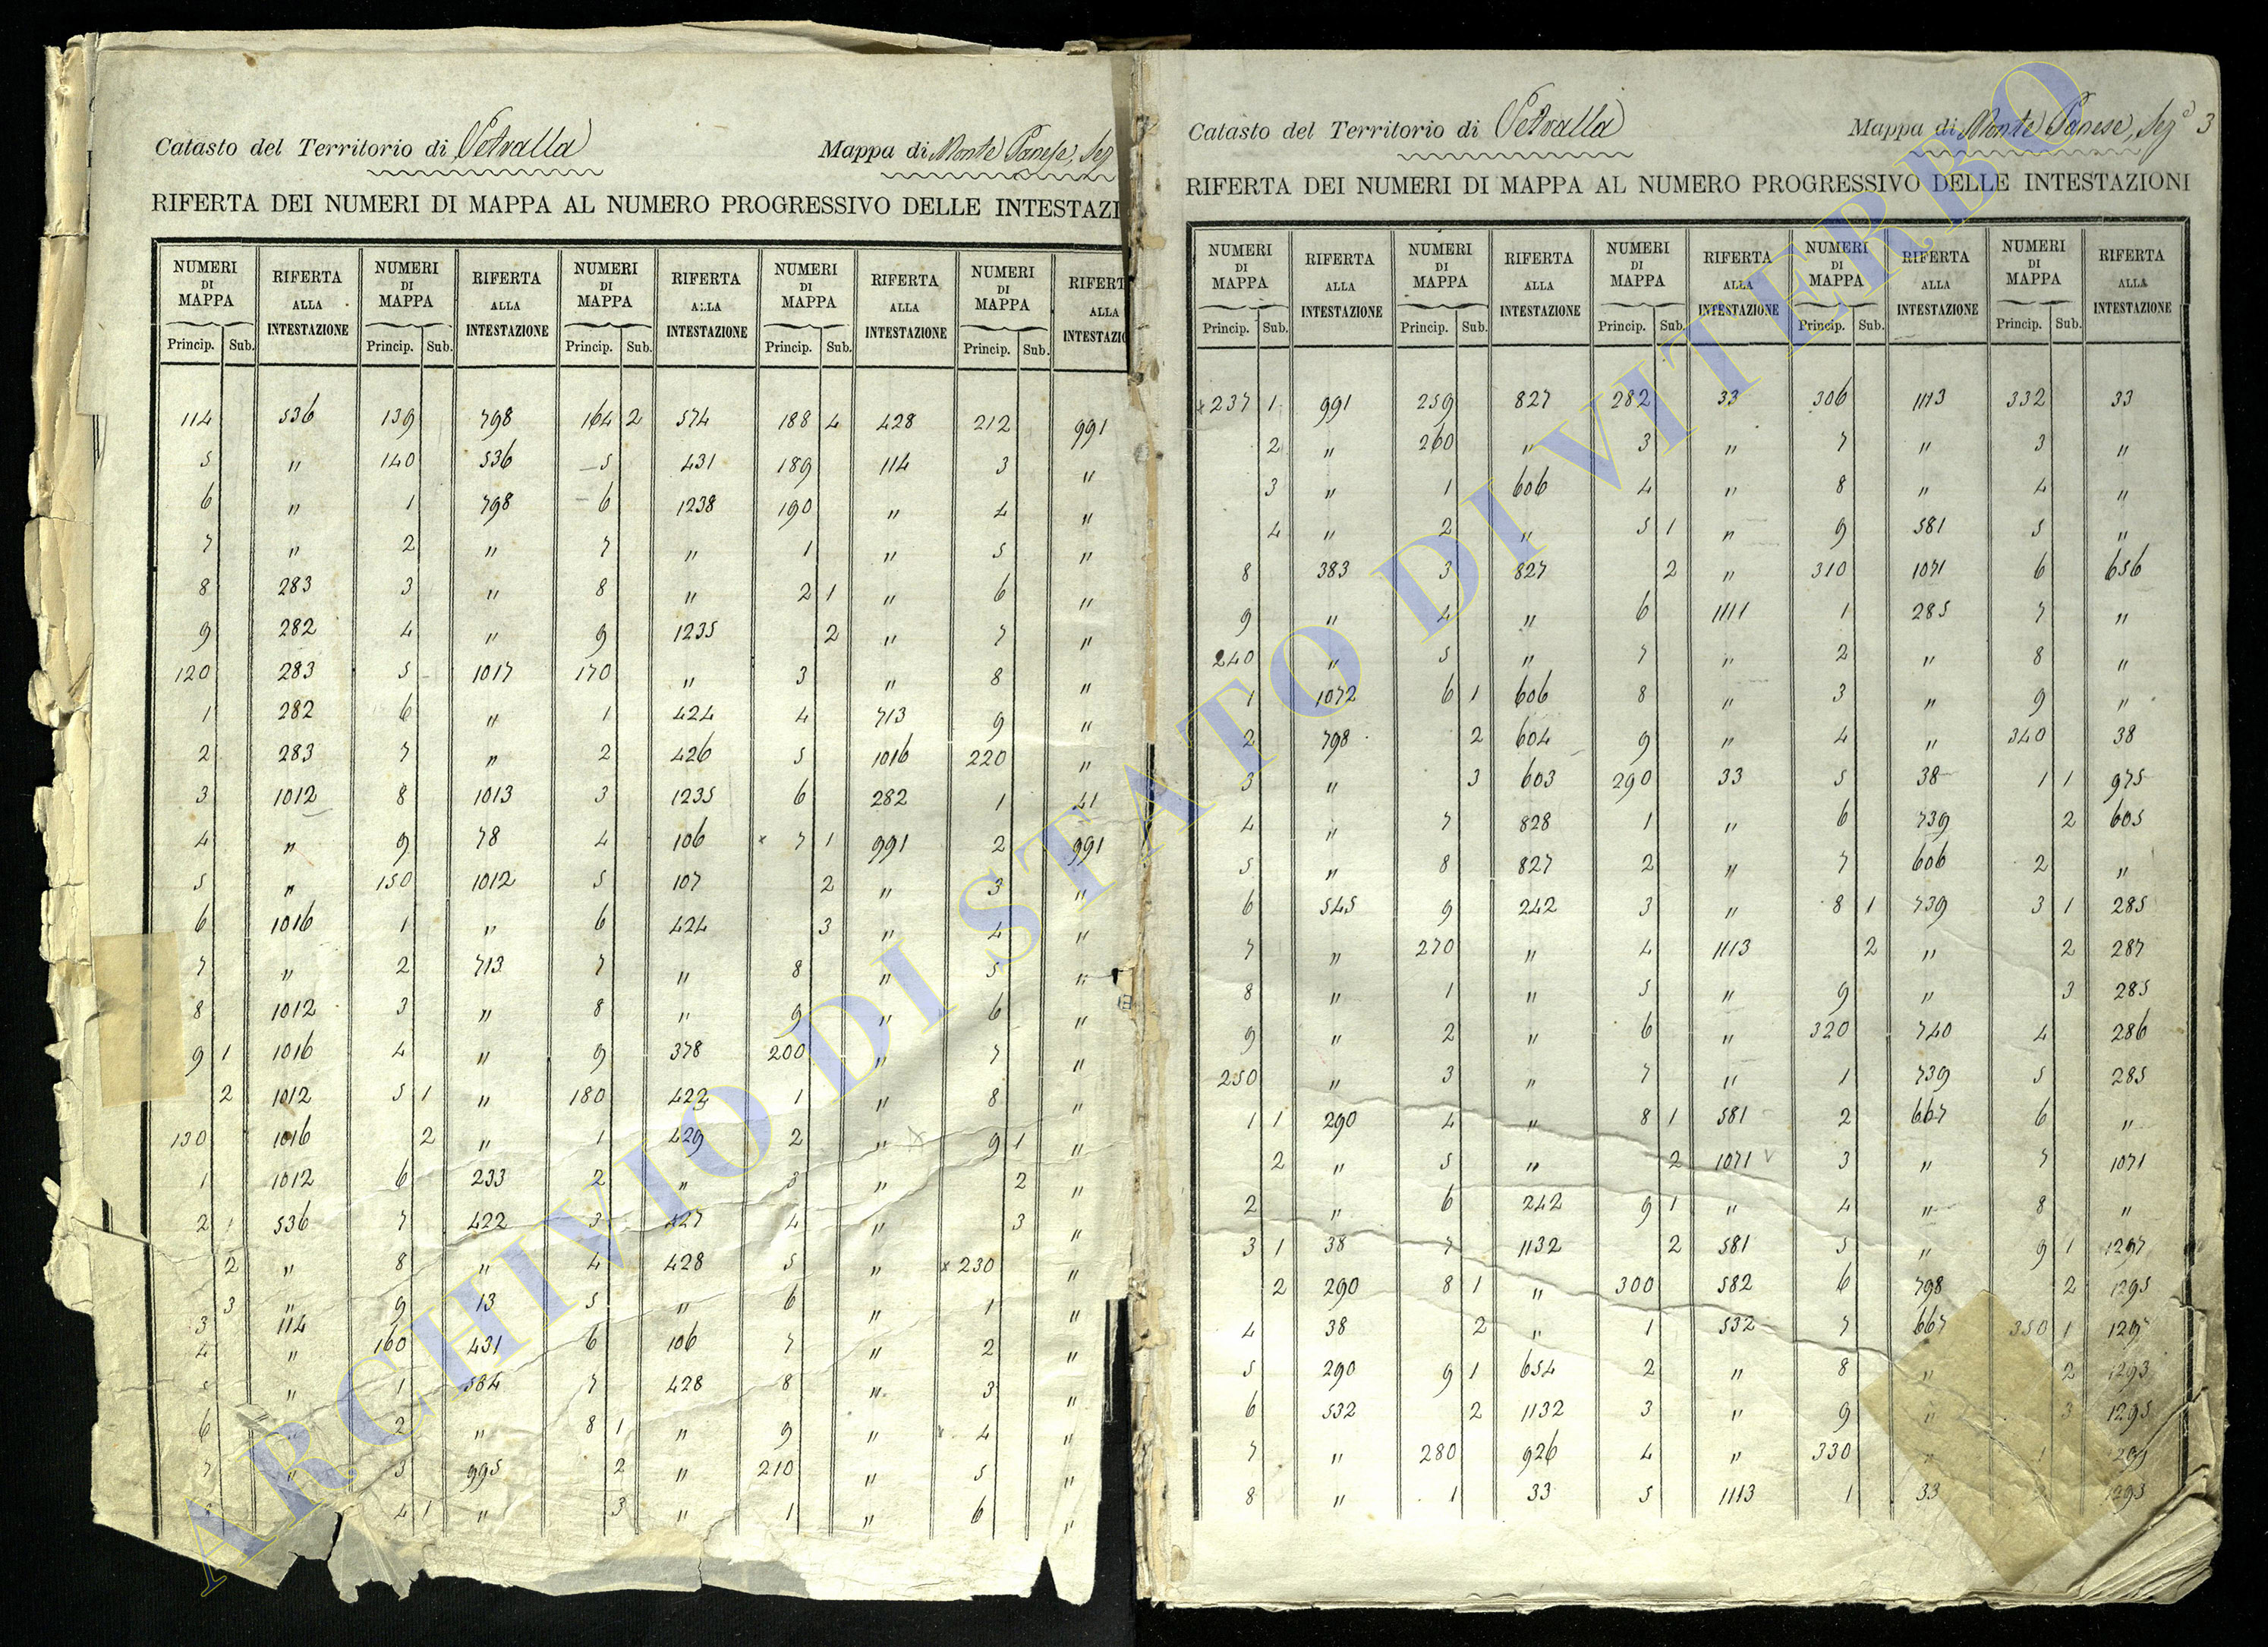 Catasto del Territorio di Vetralla Mappa di Monte Panese, Sez
RIFERTA DEI NUMERI DI MAPPA AL NUMERO PROGRESSIVO DELLE INTESTAZI
NUMERI RIFERTA NUMERI RIFERTA NUMERI RIFERTA NUMERI RIFERTA NUMERI RIFERT
DI ALLA DI ALLA DI ALLA DI ALLA DI ALLA
MAPPA INTESTAZIONE MAPPA INTESTAZIONE MAPPA INTESTAZIONE MAPPA INTESTAZIONE MAPPA INTESTAZIO
Princip. Sub. Princip. Sub. Princip. Sub. Princip. Sub. Princip. Sub.
114 536 139 798 164 2 574 188 4 428 212 991
5 " 140 536 5 431 189 114 3 "
6 " 1 798 6 1238 190 " 4 "
7 " 2 " 7 " 1 " 5 "
8 283 3 " 8 " 2 1 " 6 "
9 282 4 " 9 1235 2 " 7 "
120 283 5 1017 170 " 3 " 8 "
1 282 6 " 1 424 4 713 9 "
2 283 7 " 2 426 5 1016 220 "
3 1012 8 1013 3 1235 6 282 1 41
4 " 9 78 4 106 x 7 1 991 2 991
5 " 150 1012 5 107 2 " 3 "
6 1016 1 " 6 424 3 " 4 "
7 " 2 713 7 " 8 " 5 "
8 1012 3 " 8 " 9 " 6 "
9 1 1016 4 " 9 378 200 " 7 "
2 1012 5 1 " 180 423 1 " 8 "
130 1016 2 " 1 429 2 " 9 1 "
1 1012 6 233 2 " 3 " 2 "
2 1 536 7 422 3 427 4 " 3 "
2 " 8 " 4 428 5 " x 230 "
3 " 9 13 5 " 6 " 1 "
3 114
4 " 160 431 6 106 7 " 2 "
5 " 1 534 7 428 8 " 3 "
6 " 2 " 8 1 " 9 " x 4 "
7 " 3 995 2 " 210 " 5 "
4 1 " 3 " 1 " 6 "
Catasto del Territorio di Vetralla Mappa di Monte Panese, Sez.e 3
RIFERTA DEI NUMERI DI MAPPA AL NUMERO PROGRESSIVO DELLE INTESTAZIONI
NUMERI RIFERTA NUMERI RIFERTA NUMERI RIFERTA NUMERI RIFERTA NUMERI RIFERTA
DI ALLA DI ALLA DI ALLA DI ALLA DI ALLA
MAPPA INTESTAZIONE MAPPA INTESTAZIONE MAPPA INTESTAZIONE MAPPA INTESTAZIONE MAPPA INTESTAZIONE
Princip. Sub. Princip. Sub. Princip. Sub. Princip. Sub. Princip. Sub.
x 237 1 991 259 827 282 33 306 1113 332 33
2 " 260 " 3 " 7 " 3 "
3 " 1 606 4 " 8 " 4 "
4 " 2 " 5 1 " 9 581 5 "
8 383 3 827 2 " 310 1071 6 656
9 " 4 " 6 1111 1 285 7 "
240 " 5 " 7 " 2 " 8 "
1 1072 6 1 606 8 " 3 " 9 "
2 798 2 604 9 " 4 " 340 38
3 " 3 603 290 33 5 38 1 1 975
4 " 7 828 1 " 6 739 2 605
5 " 8 827 2 " 7 606 2 "
6 545 9 242 3 " 8 1 739 3 1 285
7 " 270 " 4 1113 2 " 2 287
8 " 1 " 5 " 9 " 3 285
9 " 2 " 6 " 320 740 4 286
250 " 3 " 7 " 1 739 5 285
1 1 290 4 " 8 1 581 2 667 6 "
2 " 5 " 2 1071 3 " 7 1071
2 " 6 242 9 1 " 4 " 8 "
3 1 38 7 1132 2 581 5 " 9 1 1297
2 290 8 1 " 300 582 6 798 2 1295
4 38 2 " 1 532 7 667 350 1 1297
5 290 9 1 654 2 " 8 " 2 1293
6 532 2 1132 3 " 9 " 3 1295
7 " 280 926 4 " 330 "
8 " 1 33 5 1113 1 33 2 1293
ARCHIVIO DI STATO DI VITERBO